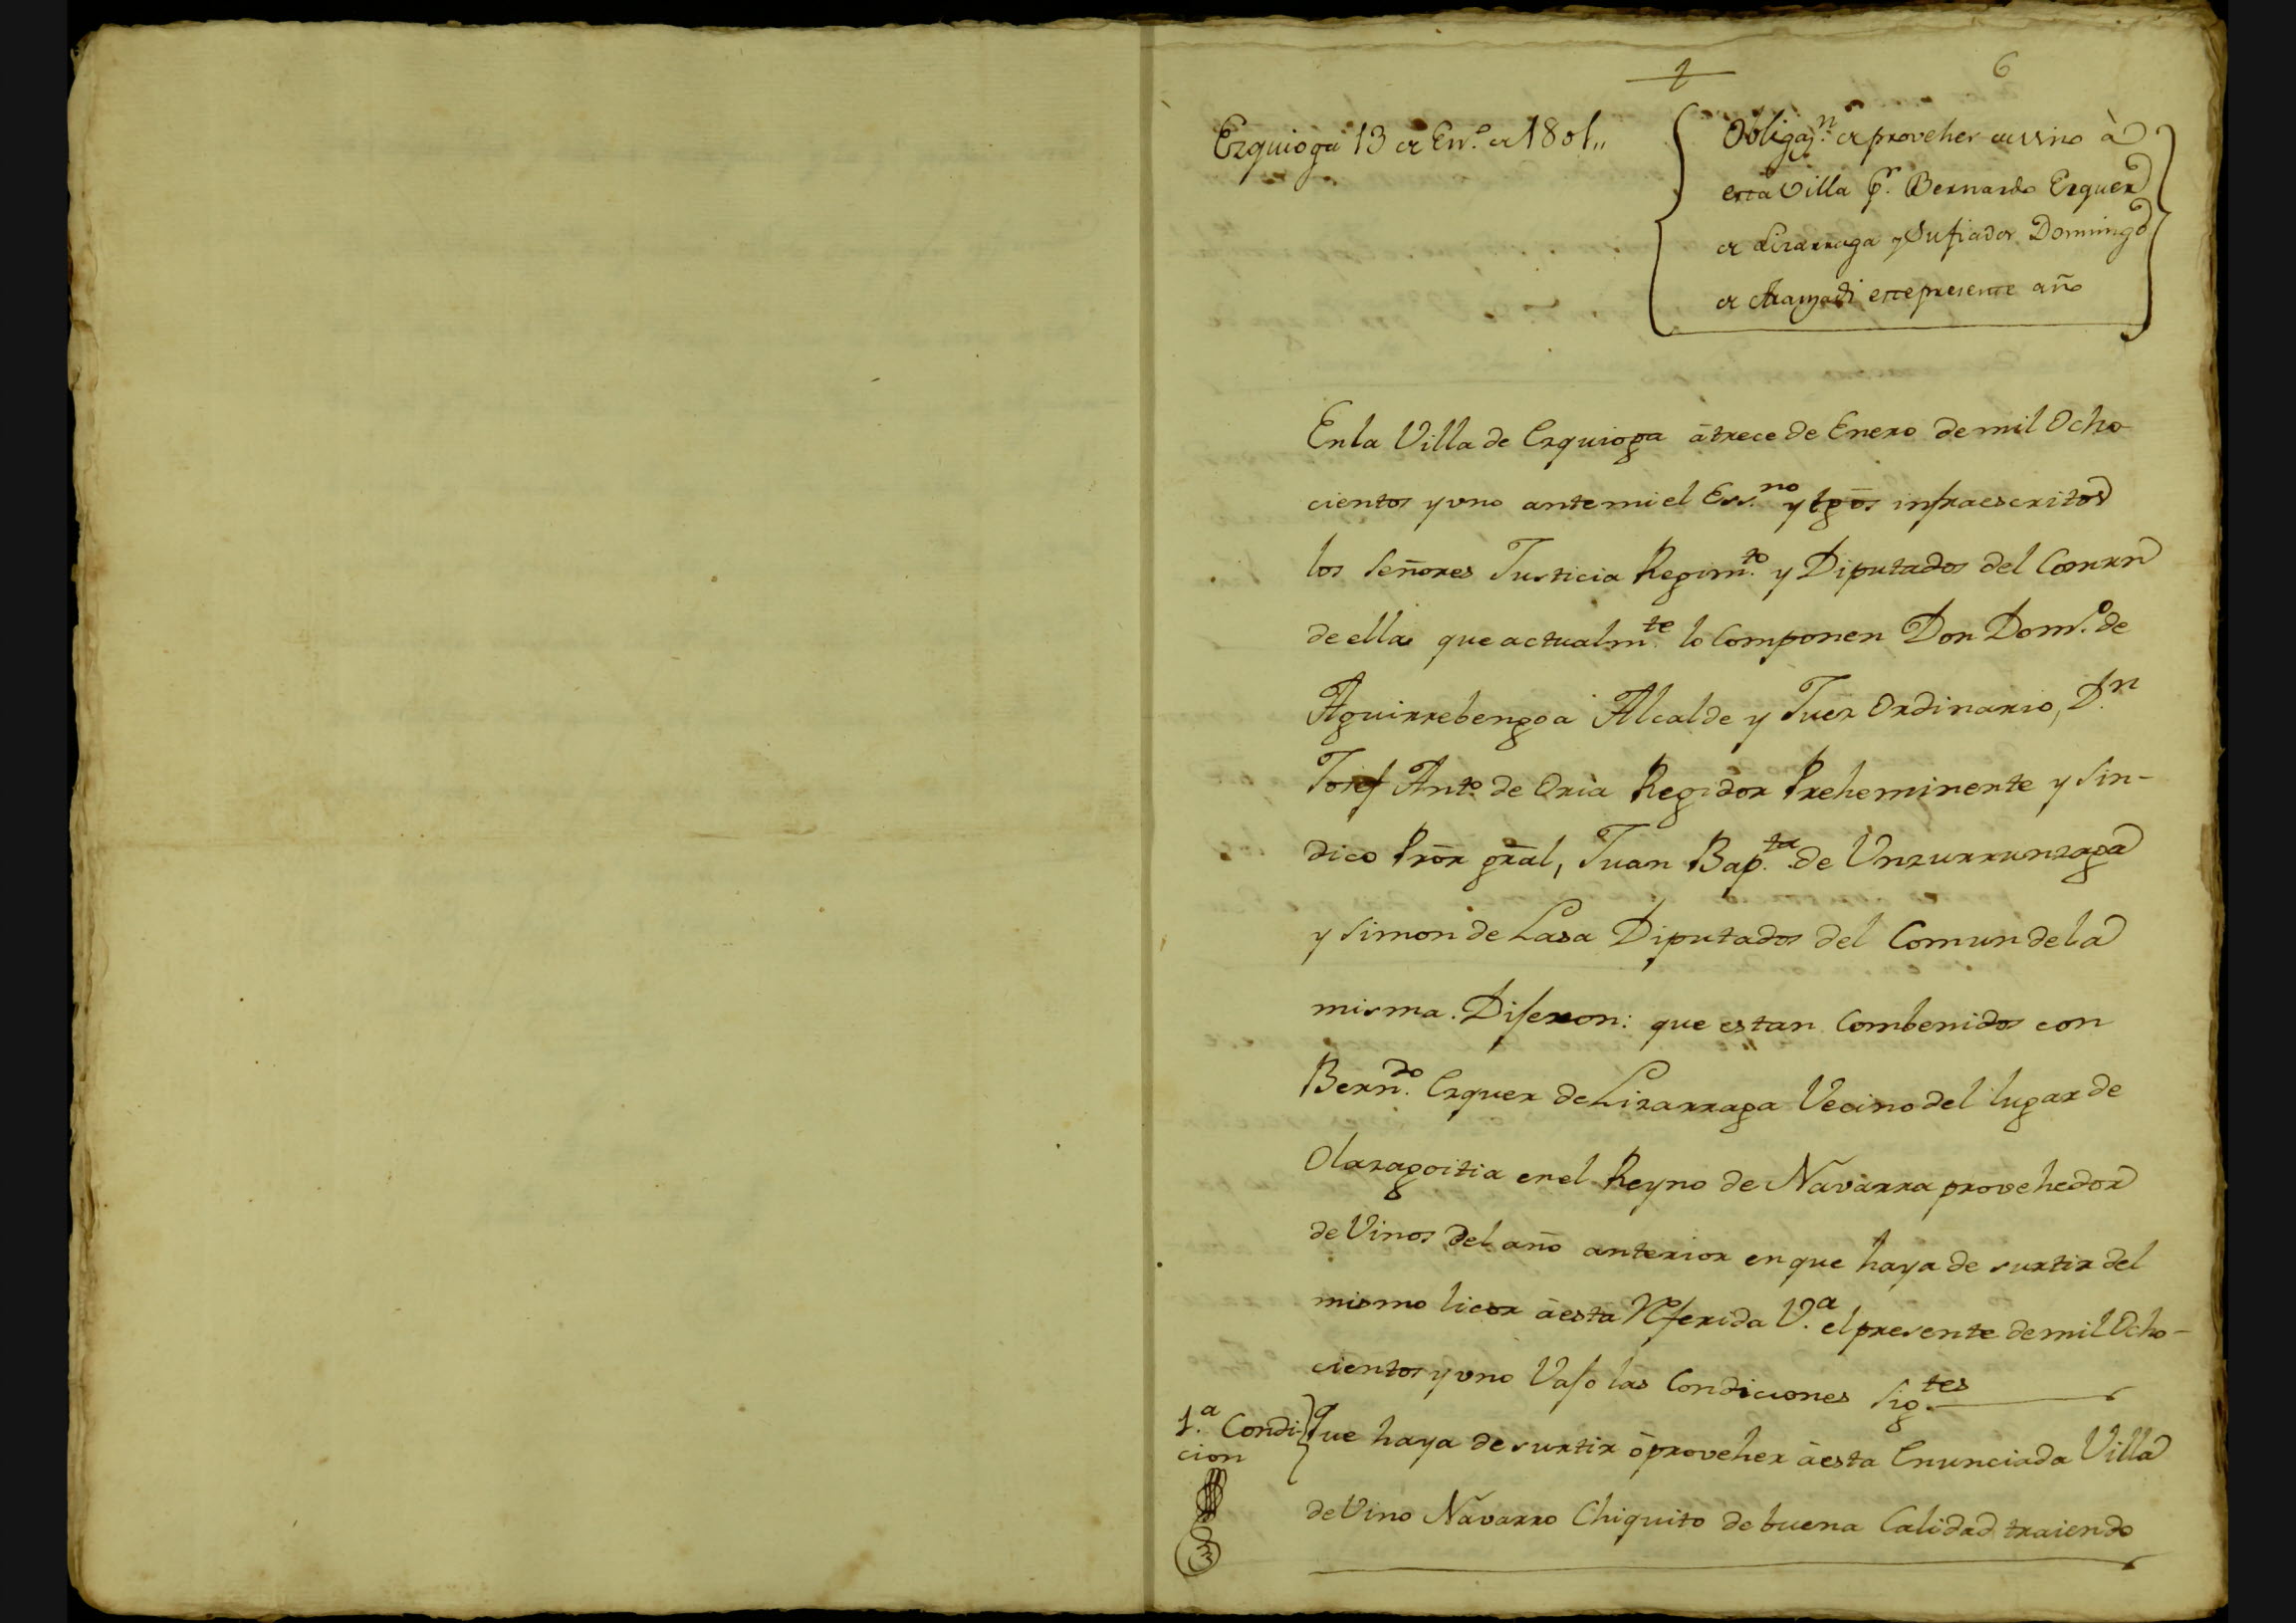 1
6
Ezquioga 13 de En.º de 1801,,
Obligaz.n de proveher de vino à
esta Villa p.r Bernardo Ezquer
de Lizarraga y Su fiador Domingo
de este presente año
En la Villa de Ezquioga á trece de Enero de mil Ocho
cientos y uno ante mi el Ess.no y tgõs infraescritos
los Señores Justicia Regim.to y Diputados del Comun
de ella que actualm.te lo Componen Don Dom.º de
Aguirrebengoa Alcalde y Juez Ordinario, D.n
Josef Ant.º de Oria Regidor Preheminente y Sin-
dico Prõr grãl, Juan Bap.ta de Unzurrunzaga
y Simon de Lasa Diputados del Comun de la
misma. Diferon: que estan Combenidos con
Bern.do Ezquer de Lizarraga Vecino del lugar de
Olazagoitia en el Reyno de Navarra provehedor
de Vinos del año anterior en que haya de surtir del
mismo licor á esta Referida V.a el presente de mil Ocho-
cientos y uno Vafo las Condiciones Sig.tes
1.a Condi-
cion
Que haya de surtir ó proveher á esta Enunciada Villa
de Vino Navarro Chiquito de buena Calidad trayendo